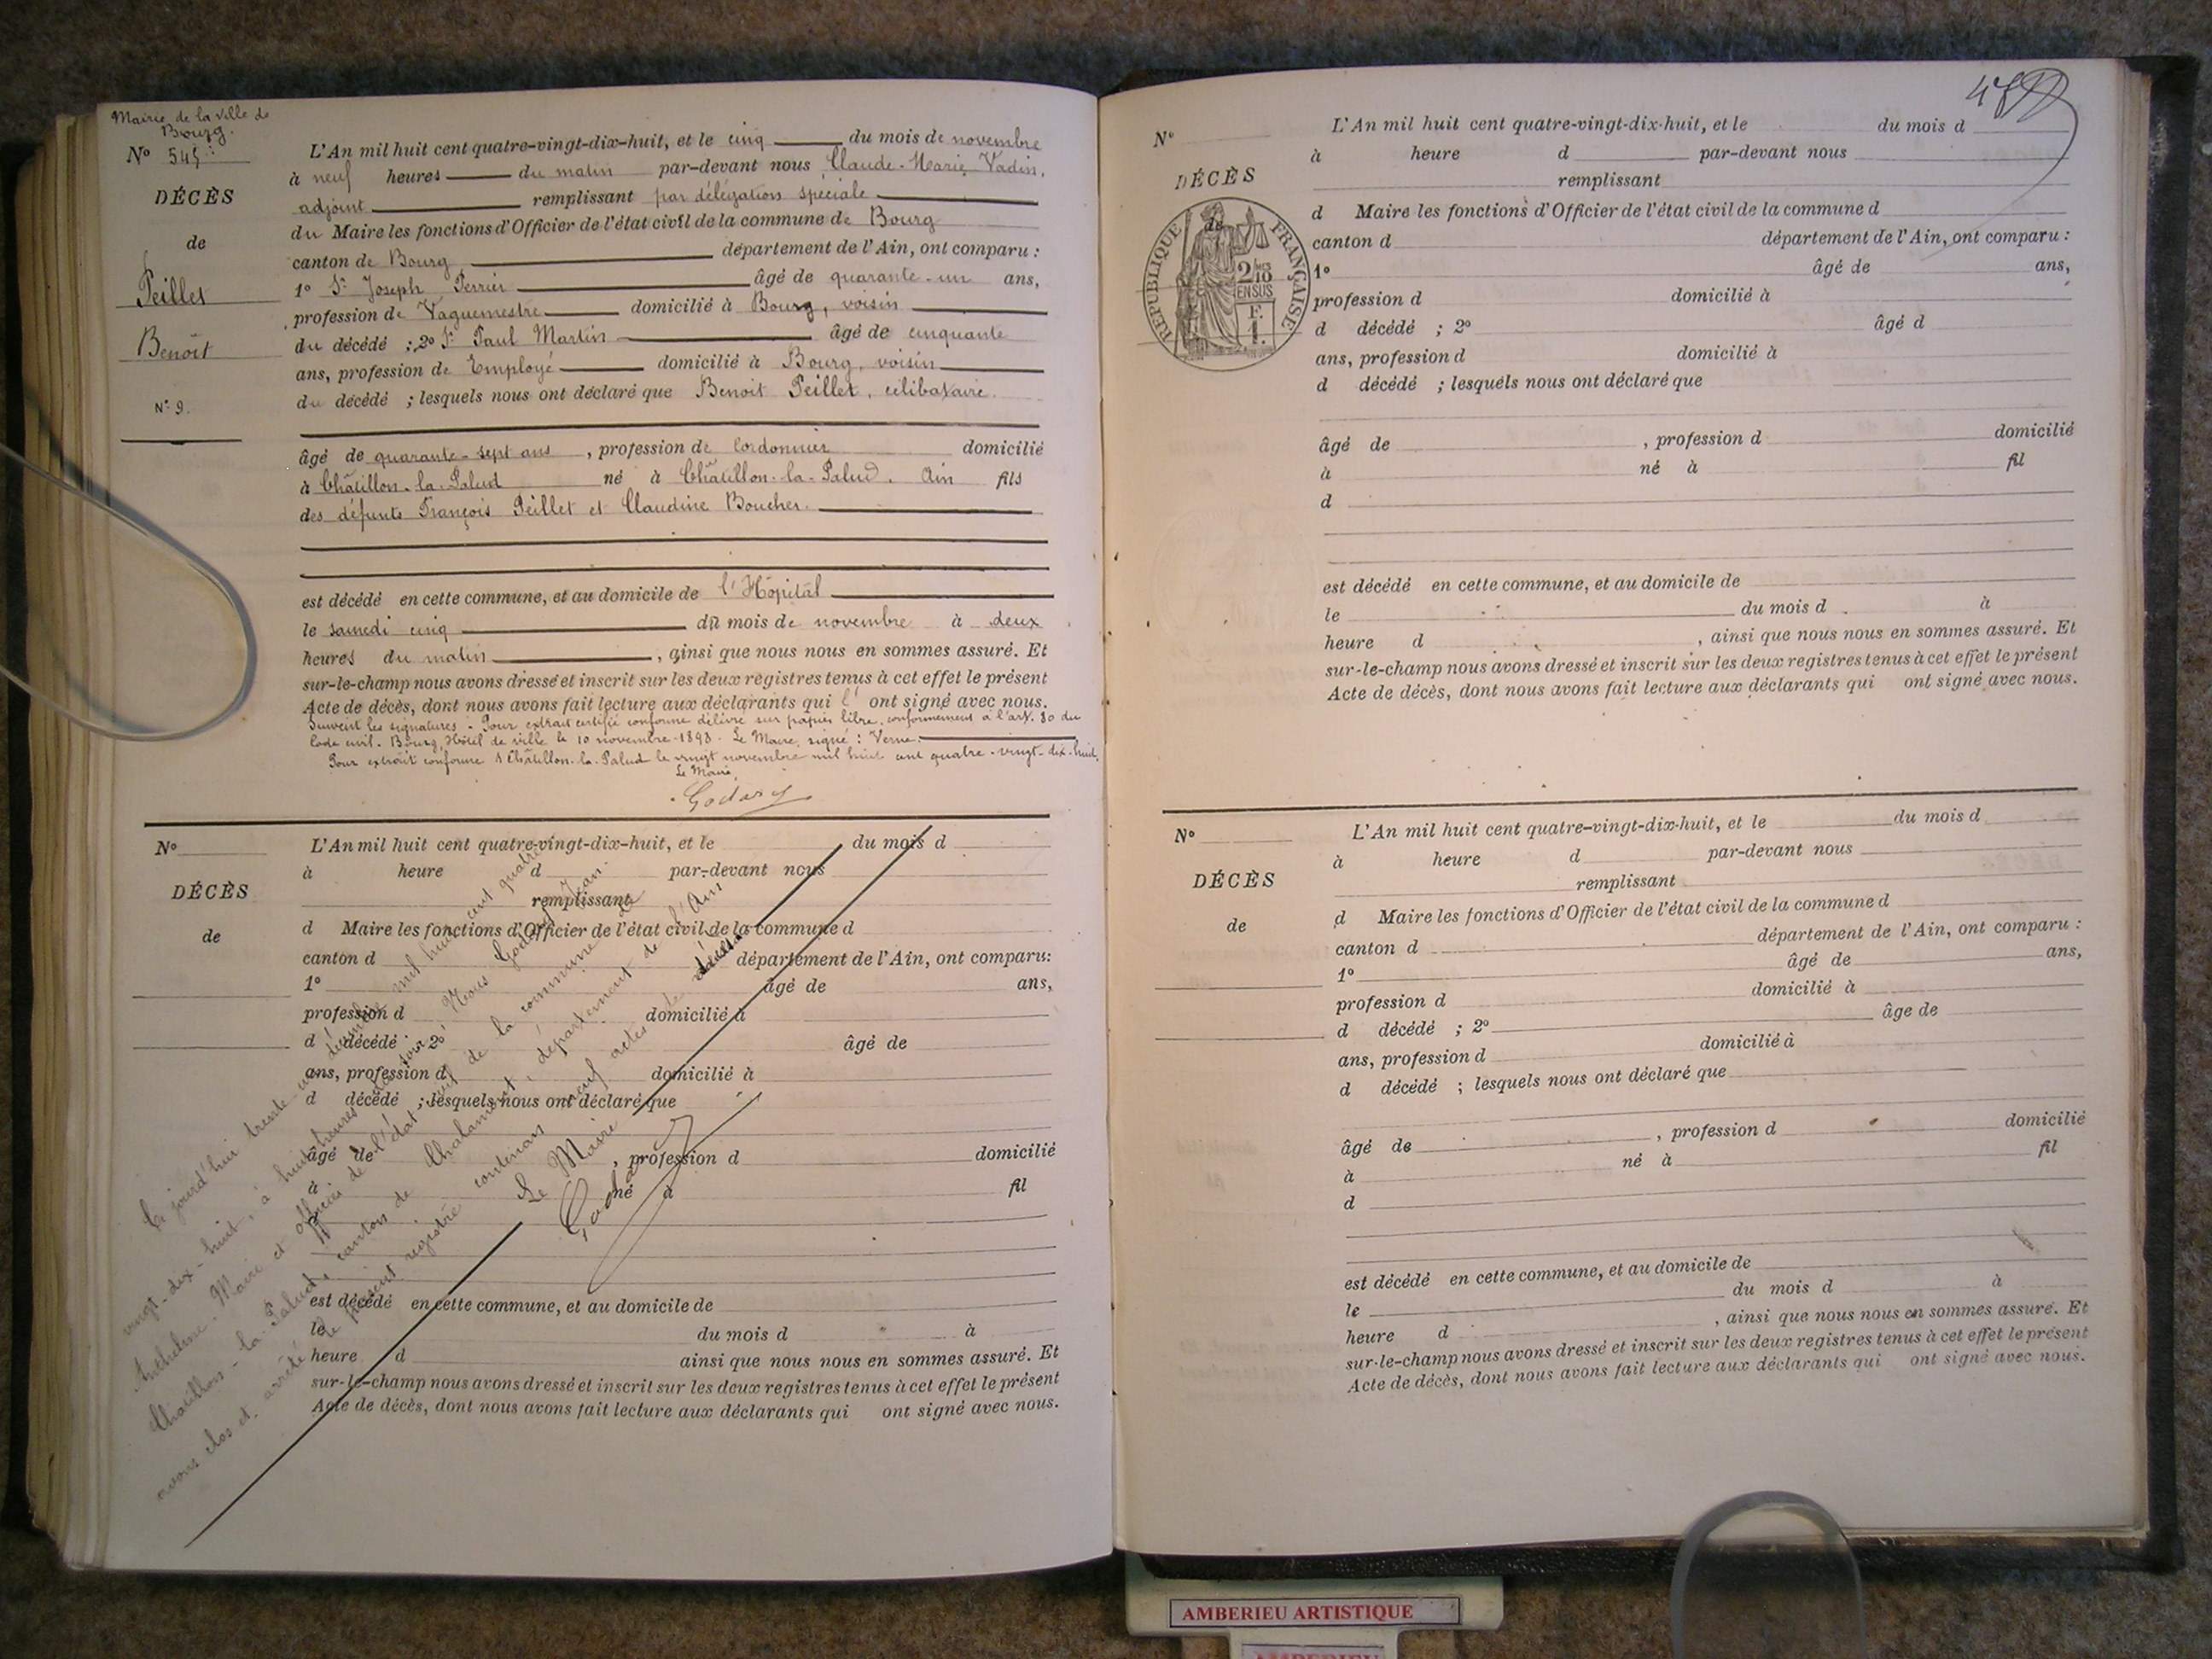 Mairie de la ville de
Bourg.
N° 545
DÉCÈS
de
Peillet
Benoît
N° 9.
L'An mil huit cent quatre-vingt-dix-huit, et le cinq du mois de novembre
à neuf heures du matin par-devant nous Claude-Marie Vadin,
adjoint remplissant par délégation spéciale
du Maire les fonctions d'Officier de l'état civil de la commune de Bourg
canton de Bourg département de l'Ain, ont comparu :
1° Sr Joseph Perrier âgé de quarante-un ans,
profession de Vaguemestre domicilié à Bourg, voisin
du décédé ; 2° Sr Paul Martin âgé de cinquante
ans, profession de Employé domicilié à Bourg, voisin
du décédé ; lesquels nous ont déclaré que Benoit Peillet, célibataire.
âgé de quarante-sept ans, profession de Cordonnier domicilié
à Châtillon-la-Palud né à Châtillon-la-Palud. Ain fils
des défunts François Peillet et Claudine Boucher.
est décédé en cette commune, et au domicile de l'Hôpital
le samedi cinq du mois de novembre à deux
heures du matin, ainsi que nous nous en sommes assuré. Et
sur-le-champ nous avons dressé et inscrit sur les deux registres tenus à cet effet le présent
Acte de décès, dont nous avons fait lecture aux déclarants qui l' ont signé avec nous.
Suivent les signatures - Pour extrait certifié conforme délivré sur papier libre, conformément à l'art. 80 du
Code civil. Bourg, Hôtel de ville le 10 novembre 1898 - Le Maire, signé : Verne.
Pour extrait conforme à Châtillon-la-Palud le vingt novembre mil huit cent quatre-vingt-dix-huit.
Le Maire,
Godary
N°
DÉCÈS
de
L'An mil huit cent quatre-vingt-dix-huit, et le du mois d
à heure d par-devant nous
remplissant
d Maire les fonctions d'Officier de l'état civil de la commune d
canton d département de l'Ain, ont comparu:
1° âgé de ans,
profession d domicilié à
d décédé ; 2° âgé de
ans, profession d domicilié à
d décédé ; lesquels nous ont déclaré que
âgé de , profession d domicilié
à né à fil
d
est décédé en cette commune, et au domicile de
le du mois d à
heure d ainsi que nous nous en sommes assuré. Et
sur-le-champ nous avons dressé et inscrit sur les deux registres tenus à cet effet le présent
Acte de décès, dont nous avons fait lecture aux déclarants qui ont signé avec nous.
Ce jourd'hui trente un décembre mil huit cent quatre
vingt-dix-huit, à huit heures du soir Nous Godary Jean
Anthelme, Maire et officier de l'état civil de la commune de
Châtillon-la-Palud, canton de Chalamont, département de l'Ain
avons clos et arrêté le présent registre contenant neuf actes de décès
Le Maire
Godary
N°
DÉCÈS
de
RÉPUBLIQUE FRANÇAISE
2/10 EN SUS
F. 1.
L'An mil huit cent quatre-vingt-dix-huit, et le du mois d
à heure d par-devant nous
remplissant
d Maire les fonctions d'Officier de l'état civil de la commune d
canton d département de l'Ain, ont comparu :
1° âgé de ans,
profession d domicilié à
d décédé ; 2° âgé d
ans, profession d domicilié à
d décédé ; lesquels nous ont déclaré que
âgé de , profession d domicilié
à né à fil
d
est décédé en cette commune, et au domicile de
le du mois d à
heure d , ainsi que nous nous en sommes assuré. Et
sur-le-champ nous avons dressé et inscrit sur les deux registres tenus à cet effet le présent
Acte de décès, dont nous avons fait lecture aux déclarants qui ont signé avec nous.
N°
DÉCÈS
de
L'An mil huit cent quatre-vingt-dix-huit, et le du mois d
à heure d par-devant nous
remplissant
d Maire les fonctions d'Officier de l'état civil de la commune d
canton d département de l'Ain, ont comparu :
1° âgé de ans,
profession d domicilié à
d décédé ; 2° âge de
ans, profession d domicilié à
d décédé ; lesquels nous ont déclaré que
âgé de , profession d domicilié
à né à fil
d
est décédé en cette commune, et au domicile de
le du mois d à
heure d , ainsi que nous nous en sommes assuré. Et
sur-le-champ nous avons dressé et inscrit sur les deux registres tenus à cet effet le présent
Acte de décès, dont nous avons fait lecture aux déclarants qui ont signé avec nous.
AMBERIEU ARTISTIQUE
AMBERIEU